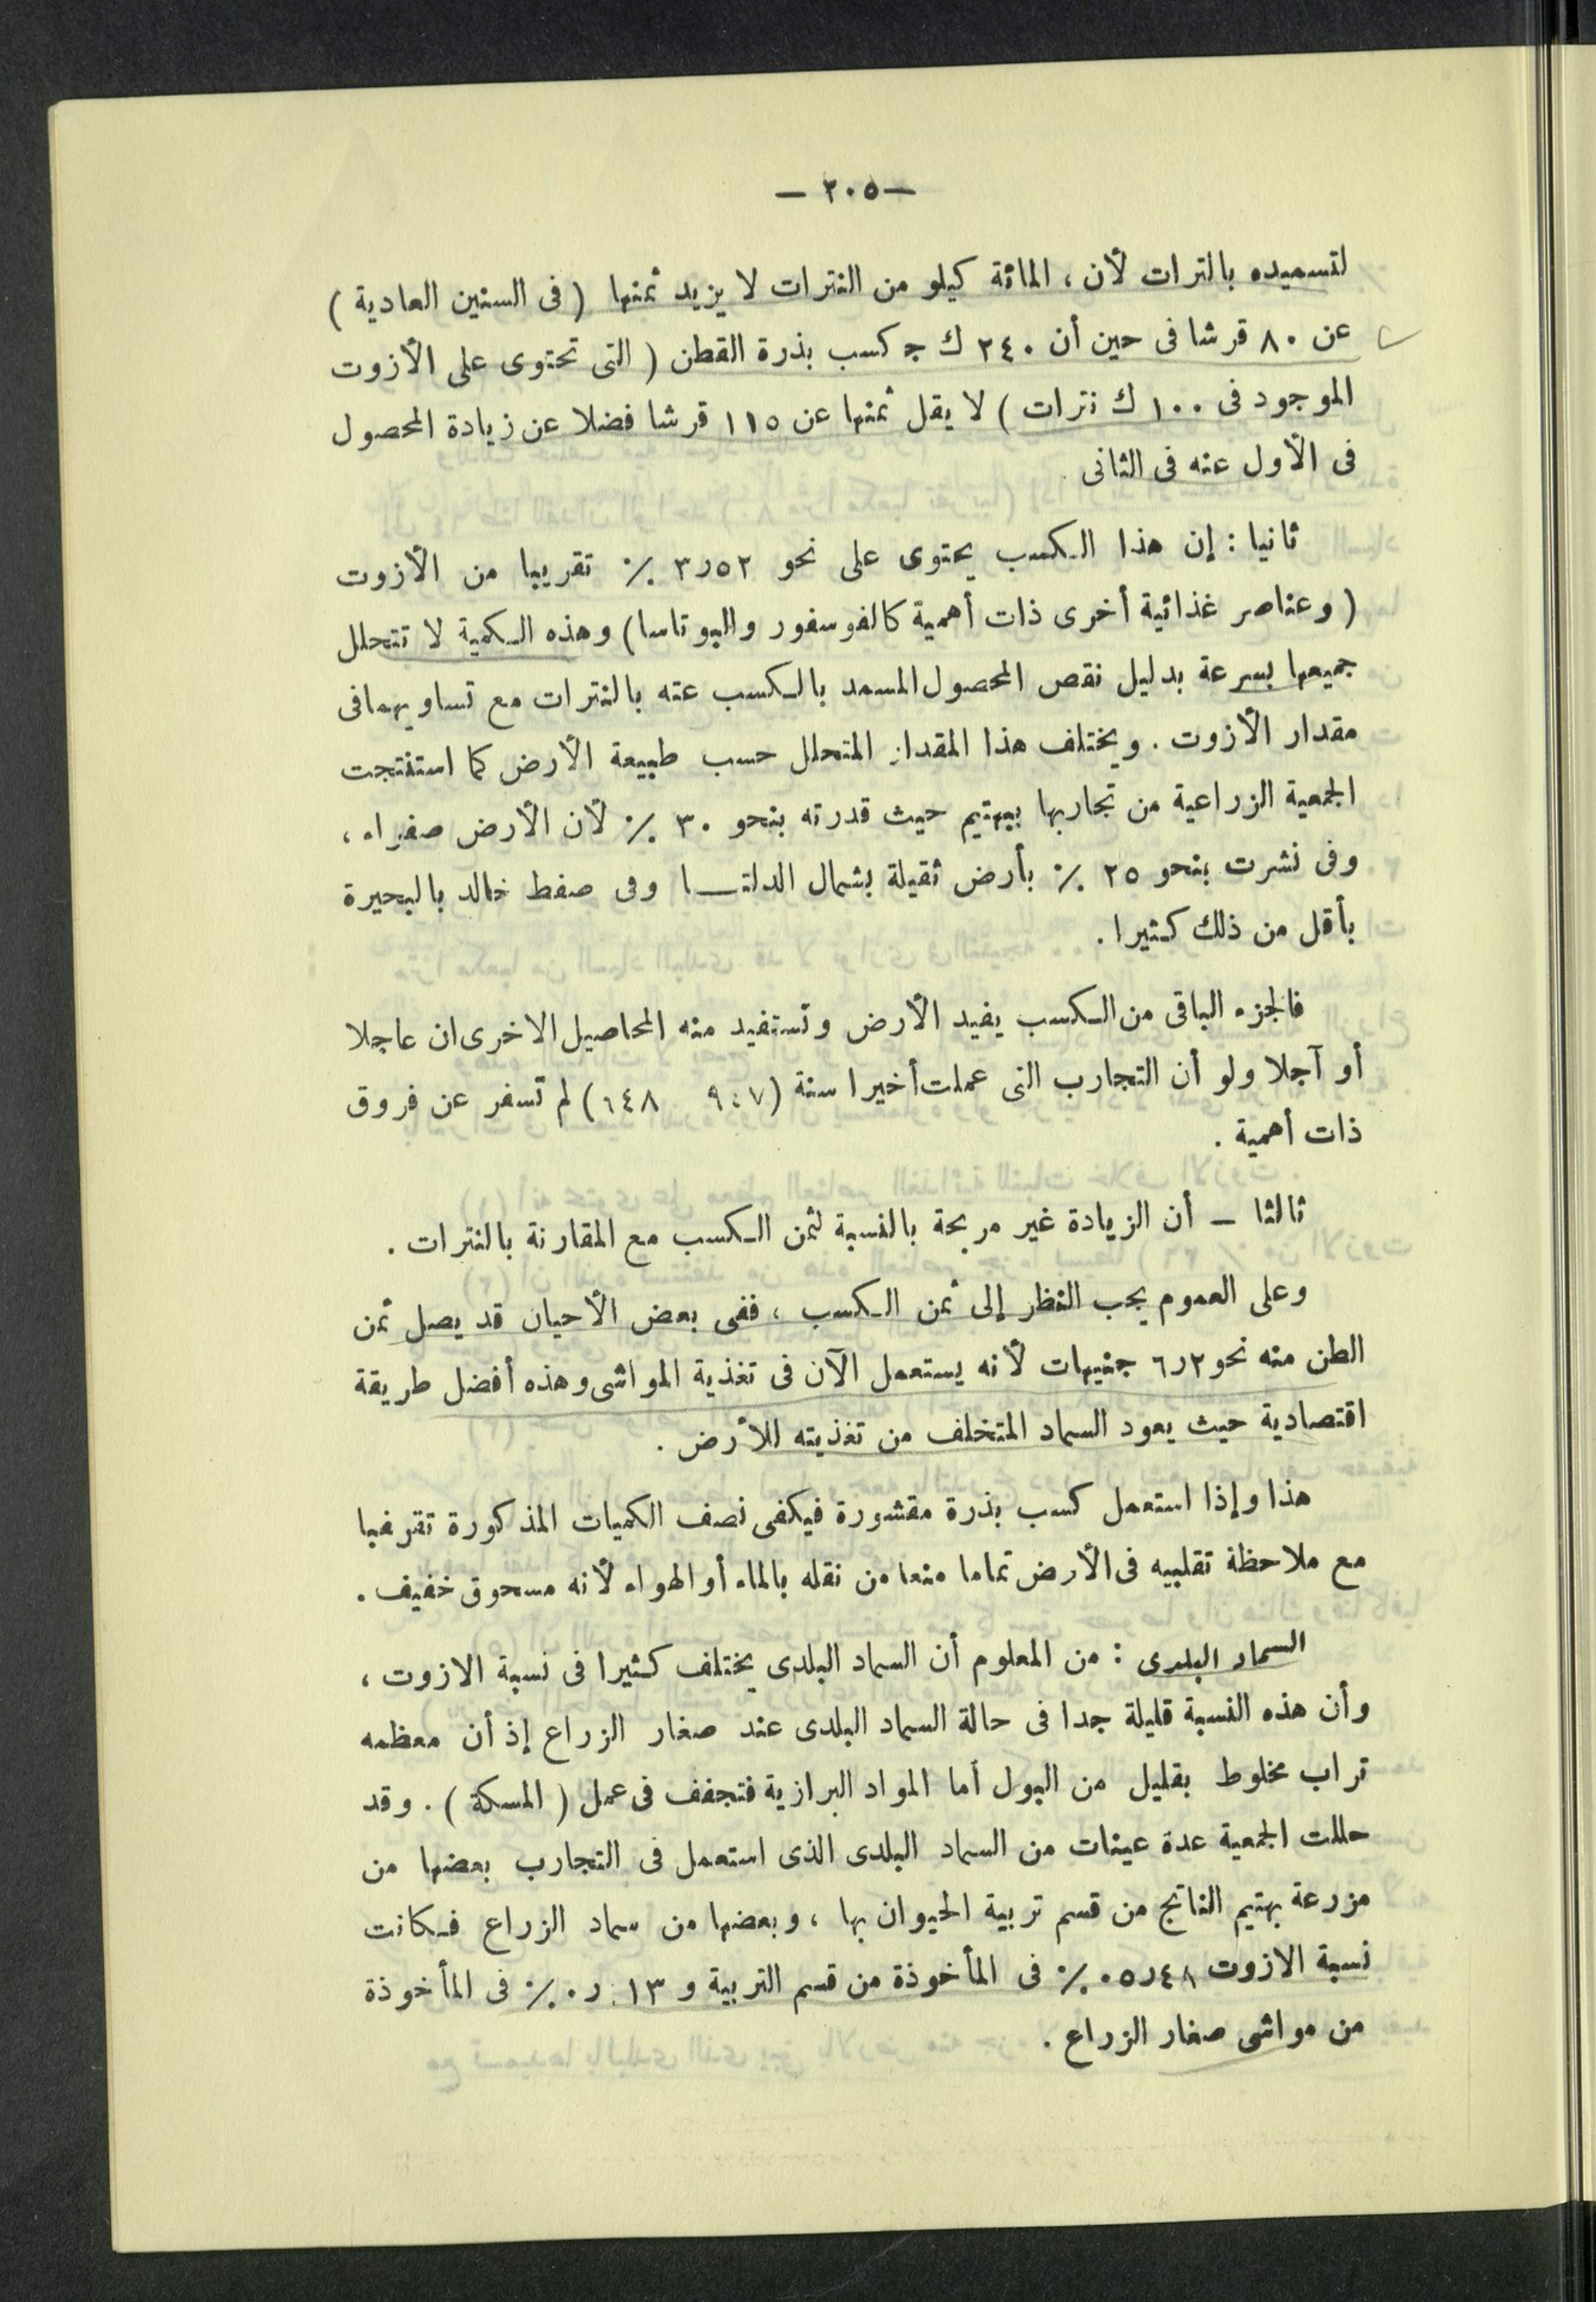 — ٢٠٥ —
لتسميده بالترات لأن ، المائة كيلو من النترات لا يزيد ثمنها ( فى السنين العادية )
عن ٨٠ قرشا فى حين أن ٢٤٠ ك ج كسب بذرة القطن ( التى تحتوى على الأزوت
الموجود فى ١٠٠ ك نترات ) لا يقل ثمنها عن ١١٥ قرشا فضلا عن زيادة المحصول
فى الأول عنه فى الثانى .
ثانيا : إن هذا الكسب يحتوى على نحو ٣ر٥٢ ٪ تقريبا من الأزوت
( وعناصر غذائية أخرى ذات أهمية كالفوسفور والبوتاسا ) وهذه الكمية لا تتحلل
جميعها بسرعة بدليل نقص المحصول المسمد بالكسب عنه بالنترات مع تساويهما فى
مقدار الأزوت . ويختلف هذا المقدار المتحلل حسب طبيعة الأرض كما استنتجت
الجمعية الزراعية من تجاربها ببهتيم حيث قدرته بنحو ٣٠ ٪ لأن الأرض صفراء ،
وفى نشرت بنحو ٢٥ ٪ بأرض ثقيلة بشمال الدلتــا وفى صفط خالد بالبحيرة
بأقل من ذلك كثيرا .
فالجزء الباقى من الكسب يفيد الأرض وتستفيد منه المحاصيل الاخرى ان عاجلا
أو آجلا ولو أن التجارب التى عملت أخيرا سنة ( ٩٤٧ ٦٤٨ ) لم تسفر عن فروق
ذات أهمية .
ثالثا — أن الزيادة غير مربحة بالنسبة لثمن الكسب مع المقارنة بالنترات .
وعلى العموم يجب النظر إلى ثمن الكسب ، ففى بعض الأحيان قد يصل ثمن
الطن منه نحو ٦ر٢ جنيهات لأنه يستعمل الآن فى تغذية المواشى وهذه أفضل طريقة
اقتصادية حيث يعود السماد المتخلف من تغذيته للأرض .
هذا وإذا استعمل كسب بذرة مقشورة فيكفى نصف الكميات المذكورة تقرغبا
مع ملاحظة تقلبيه فى الأرض تماما منعا من نقله بالماء أو الهواء لأنه مسحوق خفيف .
السماد البلدى : من المعلوم أن السماد البلدى يختلف كثيرا فى نسبة الازوت ،
وأن هذه النسبة قليلة جدا فى حالة السماد البلدى عند صغار الزراع إذ أن معظمه
تراب مخلوط بقليل من البول أما المواد البرازية فتجفف فى عمل ( المسكة ) . وقد
حللت الجمعية عدة عينات من السماد البلدى الذى استعمل فى التجارب بعضها من
مزرعة بهتيم الناتج من قسم تربية الحيوان بها ، وبعضها من سماد الزراع فكانت
نسبة الازوت ٠٥ر٤٨ ٪ فى المأخوذة من قسم التربية و ١٣ ر٠ ٪ فى المأخوذة
من مواشى صغار الزراع .